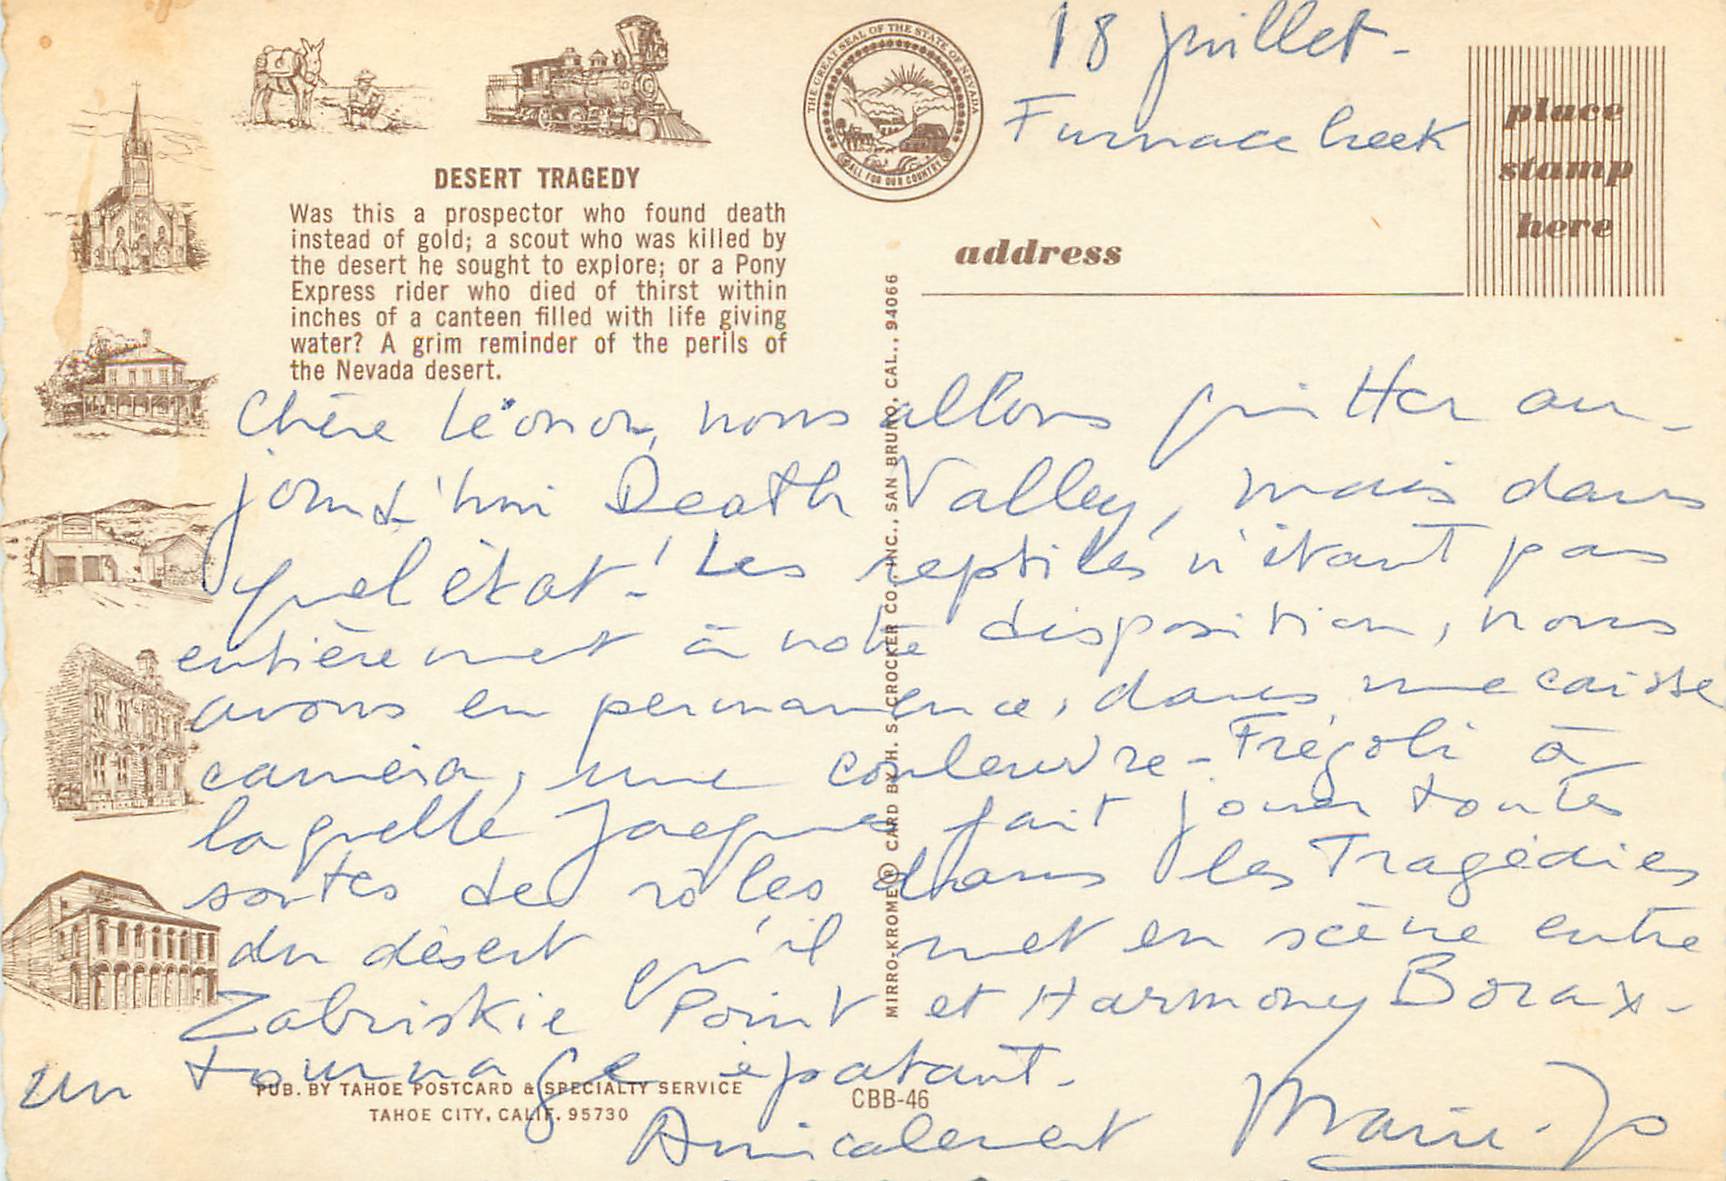 18 juillet -
Furnace Creek
THE GREAT SEAL OF THE STATE OF NEVADA
ALL FOR OUR COUNTRY
place
stamp
here
address
DESERT TRAGEDY
Was this a prospector who found death
instead of gold; a scout who was killed by
the desert he sought to explore; or a Pony
Express rider who died of thirst within
inches of a canteen filled with life giving
water? A grim reminder of the perils of
the Nevada desert.
Chère Léonor, nous allons quitter au-
jourd'hui Death Valley, mais dans
quel état! Les reptiles n'étant pas
entièrement à notre disposition, nous
avons en permanence, dans une caisse
caméra, une couleuvre-Frégoli à
laquelle Jacques fait jouer toutes
sortes de rôles dans les Tragédies
du désert qu'il met en scène entre
Zabriskie Point et Harmony Borax -
un tournage épatant.
Amicalement Marie-Jo
MIRRO-KROME® CARD BY H. S. CROCKER CO., INC., SAN BRUNO, CAL., 94066
PUB. BY TAHOE POSTCARD & SPECIALTY SERVICE
TAHOE CITY, CALIF. 95730
CBB-46